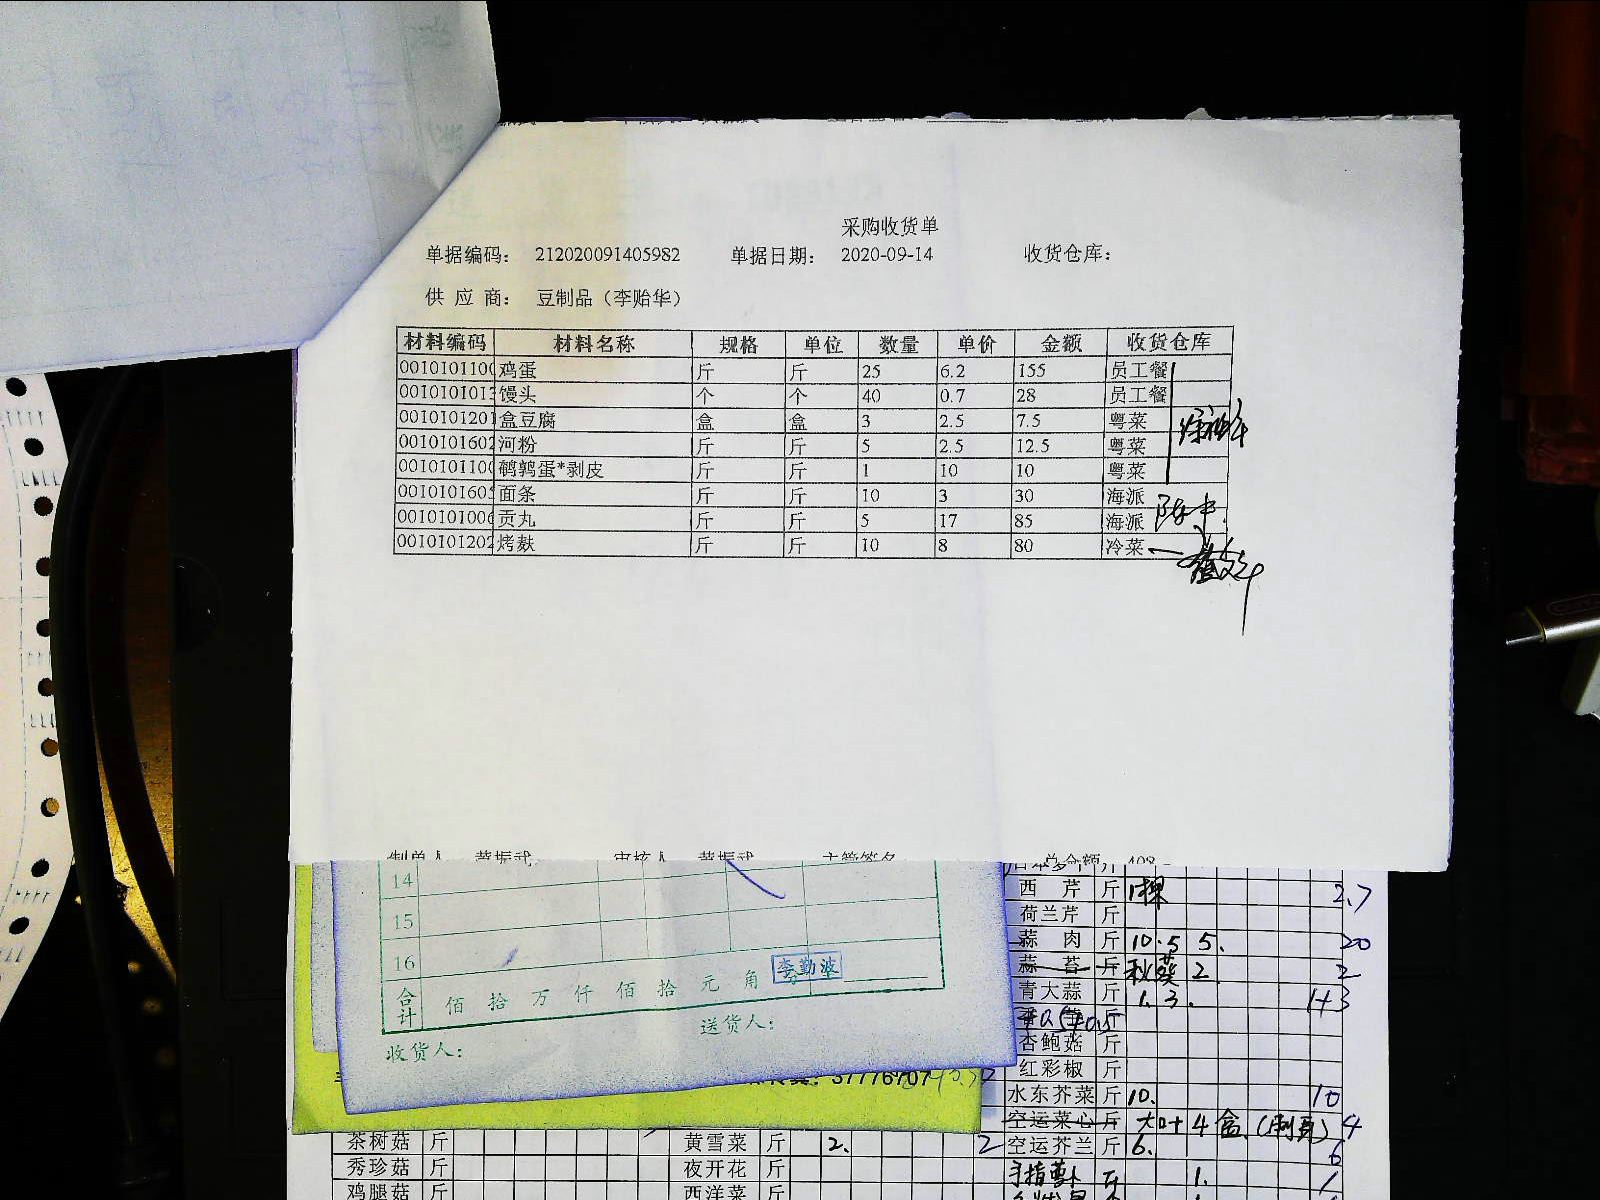 采购收货单
单据编码： 212020091405982 单据日期： 2020-09-14 收货仓库：
供 应 商： 豆制品（李贻华）
材料编码 材料名称 规格 单位 数量 单价 金额 收货仓库
0010101100 鸡蛋 斤 斤 25 6.2 155 员工餐
001010101 馒头 个 个 40 0.7 28 员工餐
0010101201 盒豆腐 盒 盒 3 2.5 7.5 粤菜
0010101602 河粉 斤 斤 5 2.5 12.5 粤菜
0010101100 鹌鹑蛋*剥皮 斤 斤 1 10 10 粤菜
001010160 面条 斤 斤 10 3 30 海派
0010101006 贡丸 斤 斤 5 17 85 海派
0010101202 烤麸 斤 斤 10 8 80 冷菜
制单人 黄振武 审核人 黄振武 主管签名 总金额 408
14
15
16
合计 佰 拾 万 仟 佰 拾 元 角 分
李勤波
送货人：
收货人：
37776707
西 芹 斤 1棵 2.7
荷兰芹 斤
蒜 肉 斤 10.5 5. 20
蒜 苔 斤 秋葵 2 2
青大蒜 斤 1. 3. 1+3
杏鲍菇 斤
红彩椒 斤
水东芥菜 斤 10. 10
空运菜心 斤 4盒 4
空运芥兰 斤 6. 6
手指萝卜 斤 1. 1
茶树菇 斤 黄雪菜 斤 2. 2
秀珍菇 斤 夜开花 斤
鸡腿菇 斤 西洋菜 斤